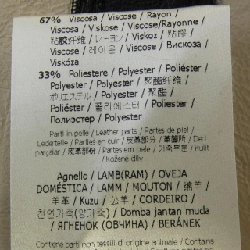 67% Viscosa / Viscose / Rayon /
Viscosa / Viskose / Viscose/Rayonne /
粘胶纤维 / レーヨン / Viskon / 粘膠 /
Viscose / 레이온 / Viscose / Вискоза /
Viskóza
33% Poliestere / Polyester / Poliéster /
Polyester / Polyester / 聚酯纤维 /
ポリエステル / Polyester / 聚酯 /
Poliéster / 폴리에스터 / Polyester /
Полиэстер / Polyester
Parti in pelle / Leather parts / Partes de piel /
Lederteile / Parties en cuir / 皮革部分 /
Agnello / LAMB(RAM) / OVEJA
DOMÉSTICA / LAMM / MOUTON / 绵羊
/ 羊革 / Kuzu / 羊 / CORDEIRO /
천연가죽(양가죽) / Domba jantan muda
/ ЯГНЕНОК (ОВЧИНА) / BERÁNEK
Contiene parti non tessili di origine animale / Contains